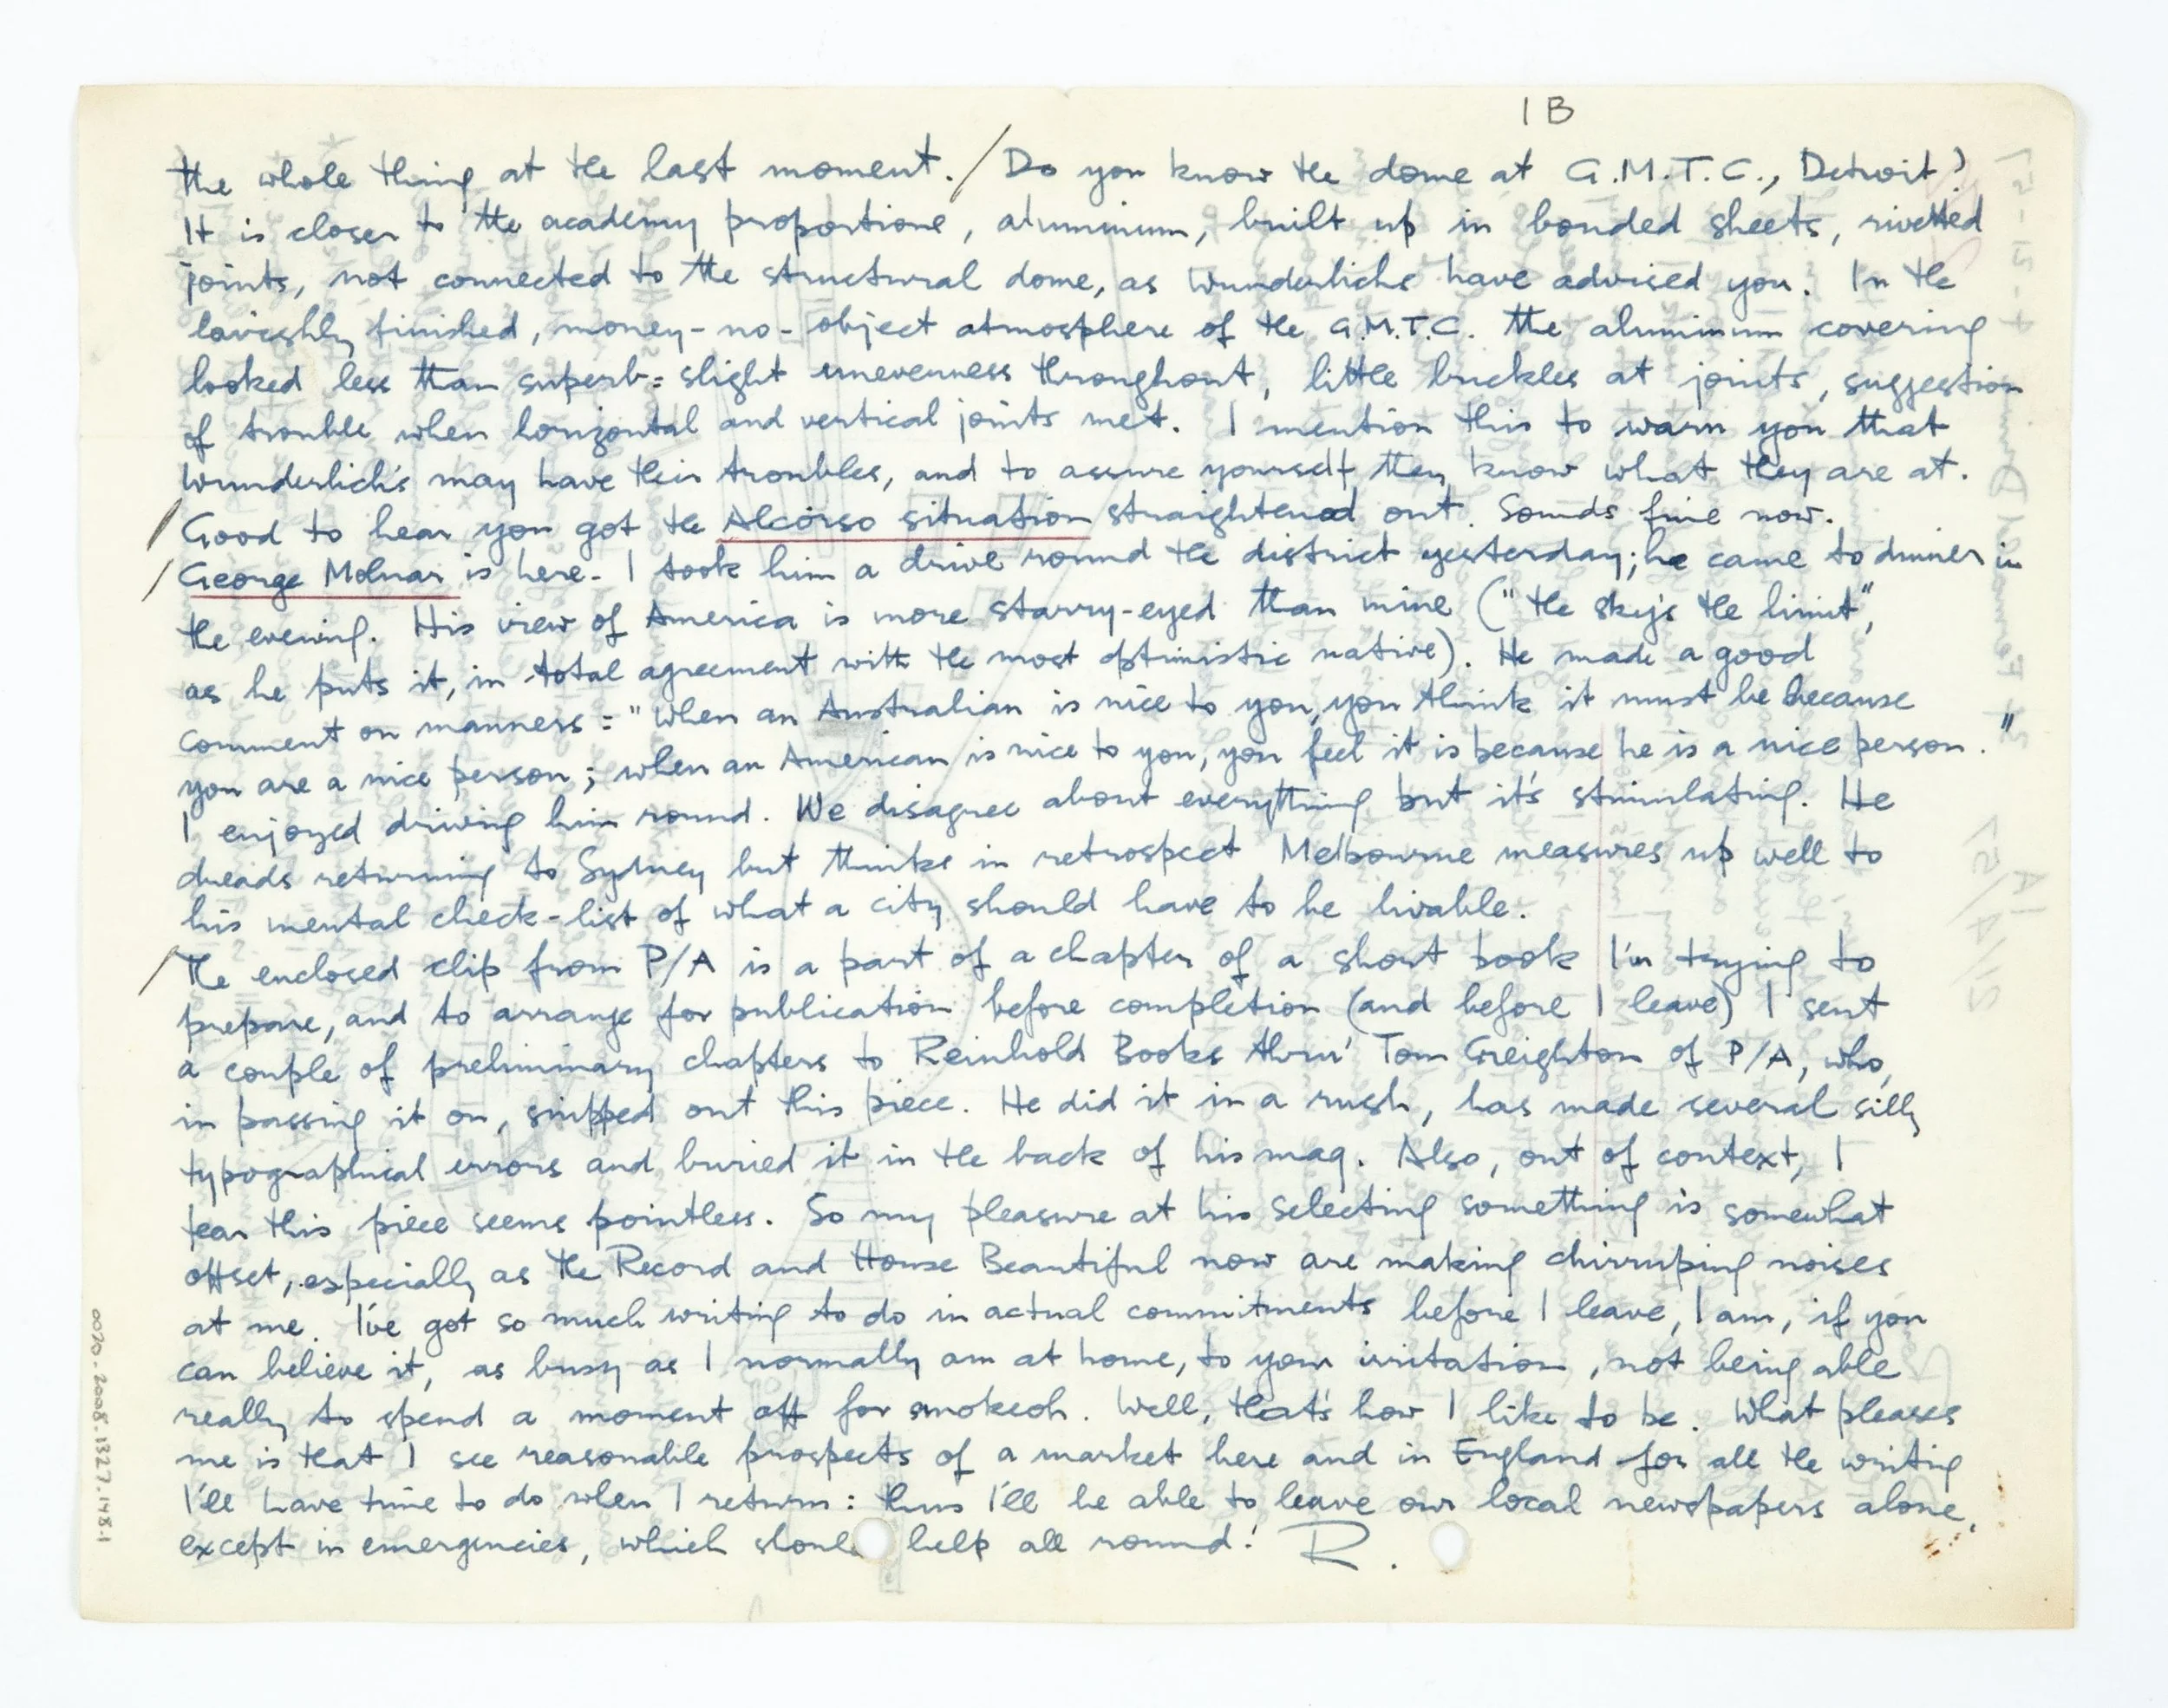 1B
the whole thing at the last moment. / Do you know the dome at G.M.T.C., Detroit?
It is closer to the academy proportions, aluminium, built up in bonded sheets, rivetted
joints, not connected to the structural dome, as Wunderlichs have advised you. In the
lavishly finished, money-no-object atmosphere of the G.M.T.C. the aluminium covering
looked less than superb: slight unevenness throughout, little buckles at joints, suggestion
of trouble when horizontal and vertical joints met. I mention this to warn you that
Wunderlich's may have their troubles, and to assure yourself they know what they are at.
/ Good to hear you got the Alcorso situation straightened out. Sounds fine now.
/ George Molnar is here. I took him a drive round the district yesterday; he came to dinner in
the evening. His view of America is more starry-eyed than mine ("the sky's the limit",
as he puts it, in total agreement with the most optimistic native). He made a good
comment on manners: "When an Australian is nice to you, you think it must be because
you are a nice person; when an American is nice to you, you feel it is because he is a nice person."
I enjoyed driving him round. We disagree about everything but it's stimulating. He
dreads returning to Sydney but thinks in retrospect Melbourne measures up well to
his mental check-list of what a city should have to be livable.
/ The enclosed clip from P/A is a part of a chapter of a short book I'm trying to
prepare, and to arrange for publication before completion (and before I leave) I sent
a couple of preliminary chapters to Reinhold Books thru' Tom Creighton of P/A, who,
in passing it on, snipped out this piece. He did it in a rush, has made several silly
typographical errors and buried it in the back of his mag. Also, out of context, I
fear this piece seems pointless. So my pleasure at his selecting something is somewhat
offset, especially as the Record and House Beautiful now are making chirruping noises
at me. I've got so much writing to do in actual commitments before I leave, I am, if you
can believe it, as busy as I normally am at home, to your irritation, not being able
really to spend a moment off for smokeoh. Well, that's how I like to be. What pleases
me is that I see reasonable prospects of a market here and in England for all the writing
I'll have time to do when I return: thus I'll be able to leave our local newspapers alone,
except in emergencies, which should help all round! R.
0020.2008.1327.148.1